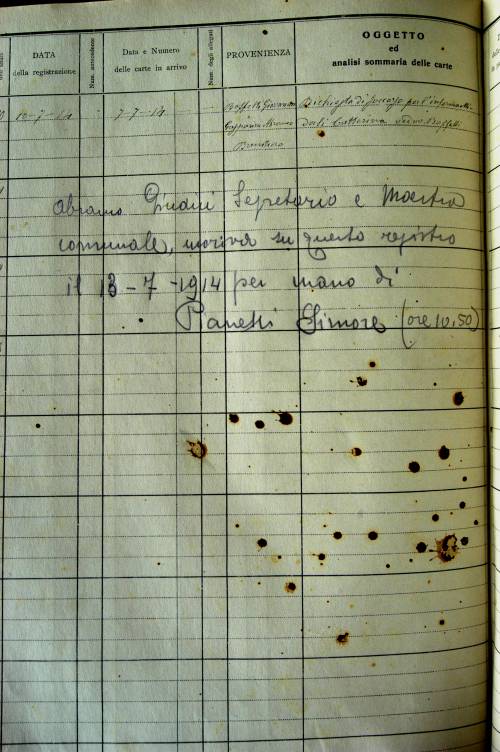 DATA
della registrazione
Num. antecedente
Data e Numero
delle carte in arrivo
Num. degli allegati
PROVENIENZA
OGGETTO
ed
analisi sommaria delle carte
10-7-14
7-7-14
Boffelli Giovanni
Richiesta di per l'infermità
Caterina Boffelli
Abramo Giudici Segretario e Maestro
comunale, moriva su questo registro
il 13-7-1914 per mano di
Pianetti Simone (ore 10,50)